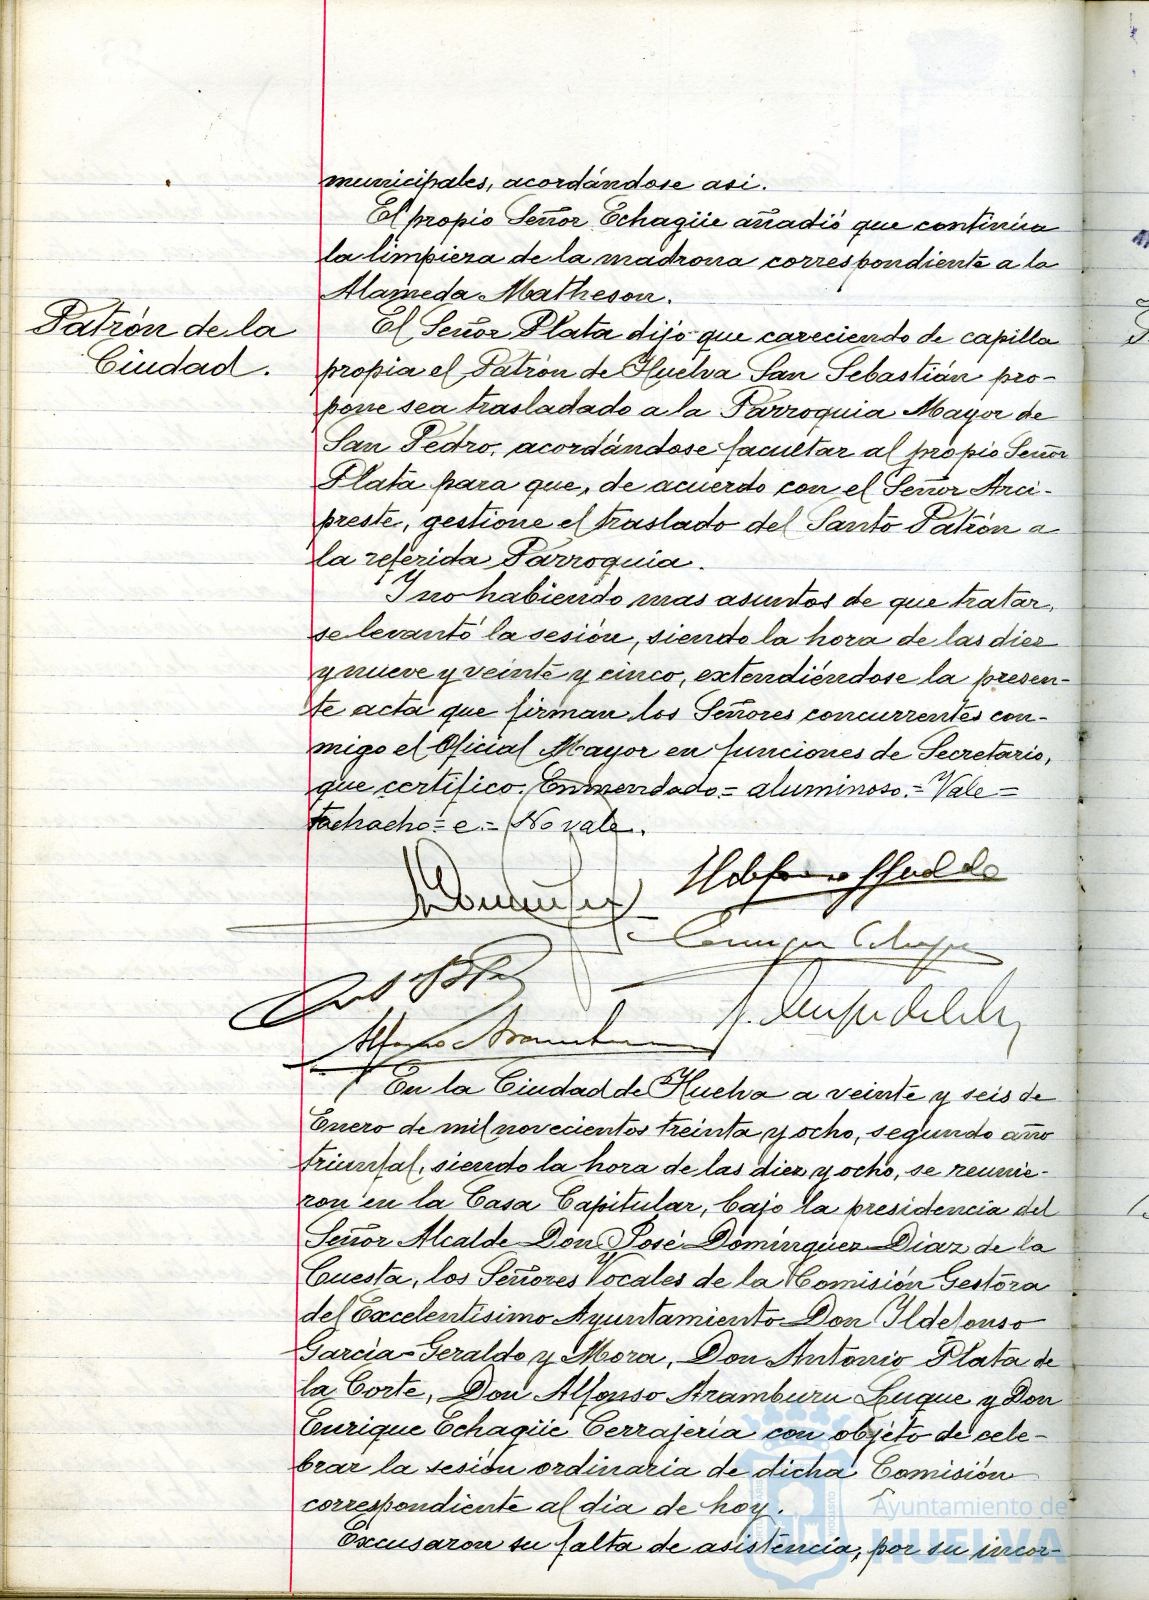 municipales, acordándose asi.
El propio Señor Echagüe añadió que continúa
la limpieza de la madrona correspondiente a la
Alameda Matheson.
Patrón de la
Ciudad.
El Señor Plata dijo que careciendo de capilla
propia el Patrón de Huelva San Sebastián pro-
pone sea trasladado a la Parroquia Mayor de
San Pedro, acordándose facultar al propio Señor
Plata para que, de acuerdo con el Señor Arci-
preste, gestione el traslado del Santo Patrón a
la referida Parroquia.
Y no habiendo mas asuntos de que tratar,
se levantó la sesión, siendo la hora de las diez
y nueve y veinte y cinco, extendiéndose la presen-
te acta que firman los Señores concurrentes con-
migo el Oficial Mayor en funciones de Secretario,
que certifico. Enmendado = aluminoso = Vale =
tachacho = e = No vale.
Alfonso Aramburu
En la Ciudad de Huelva a veinte y seis de
Enero de mil novecientos treinta y ocho, segundo año
triunfal, siendo la hora de las diez y ocho, se reunie-
ron en la Casa Capitular, bajo la presidencia del
Señor Alcalde Don José Domínguez Diaz de la
Cuesta, los Señores Vocales de la Comisión Gestora
del Excelentísimo Ayuntamiento Don Ildefonso
García-Geraldo y Mora, Don Antonio Plata de
la Corte, Don Alfonso Aramburu Luque y Don
Enrique Echagüe Cerrajería con objeto de cele-
brar la sesión ordinaria de dicha Comisión
correspondiente al dia de hoy.
Excusaron su falta de asistencia, por su incor-
Ayuntamiento de
HUELVA